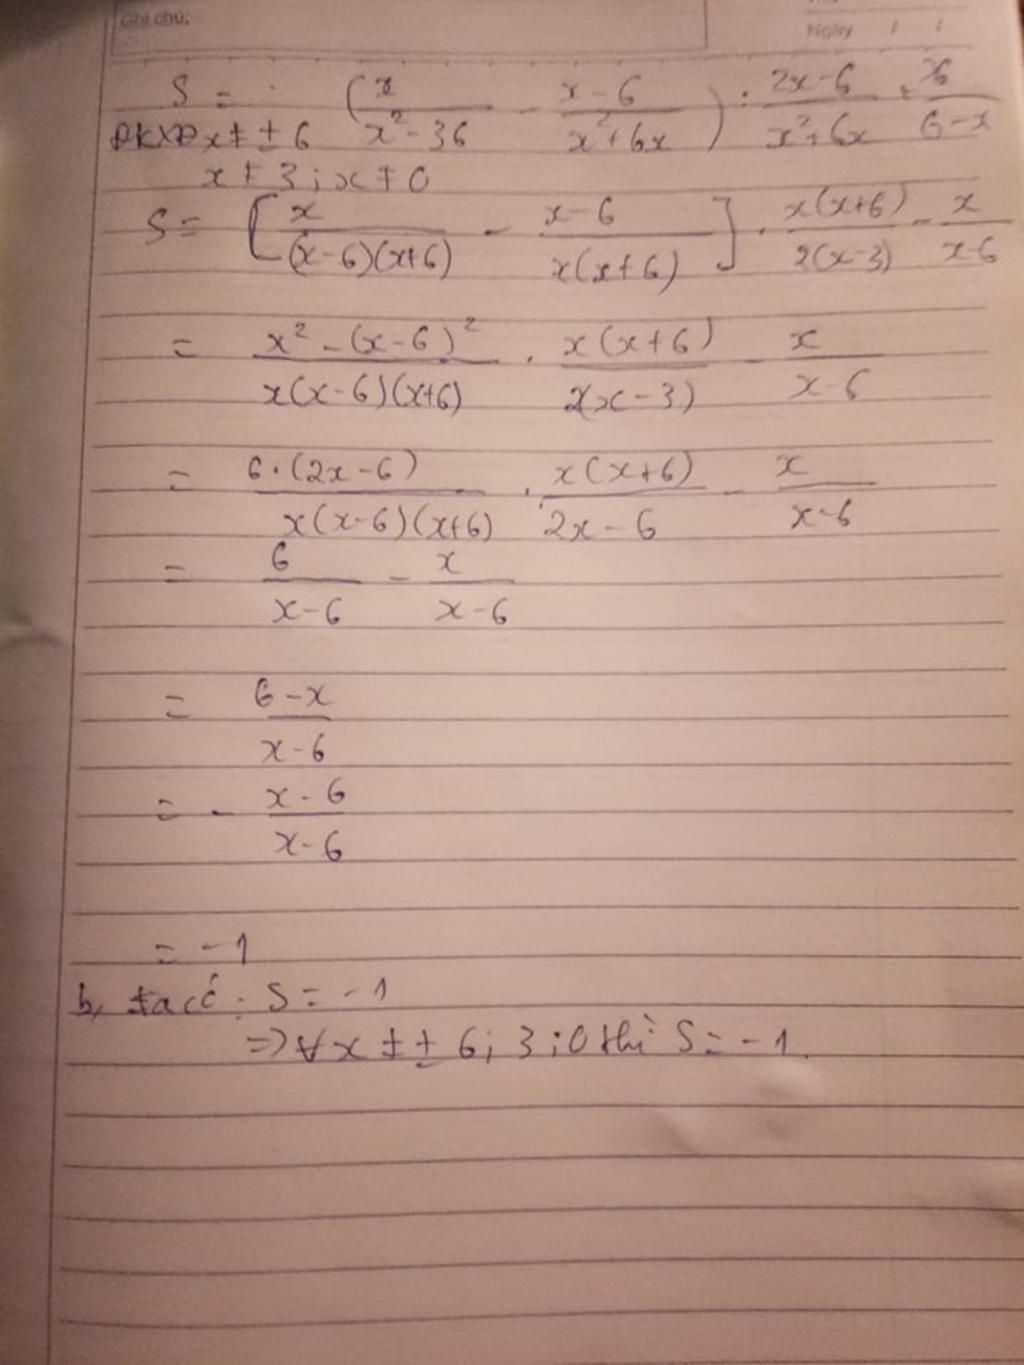 Ghi chú:
Ngày / /
S = (x/(x² - 36) - (x - 6)/(x² + 6x)) : (2x - 6)/(x² + 6x) + x/(6 - x)
ĐKXĐ x ≠ ± 6
x ≠ 3 ; x ≠ 0
S = [x/((x - 6)(x + 6)) - (x - 6)/(x(x + 6))] . x(x + 6)/(2(x - 3)) - x/(x - 6)
= (x² - (x - 6)²)/(x(x - 6)(x + 6)) . x(x + 6)/(2(x - 3)) - x/(x - 6)
= 6.(2x - 6)/(x(x - 6)(x + 6)) . x(x + 6)/(2x - 6) - x/(x - 6)
= 6/(x - 6) - x/(x - 6)
= (6 - x)/(x - 6)
= - (x - 6)/(x - 6)
= -1
b, ta có : S = -1
=> ∀x ≠ ± 6 ; 3 ; 0 thì S = -1.